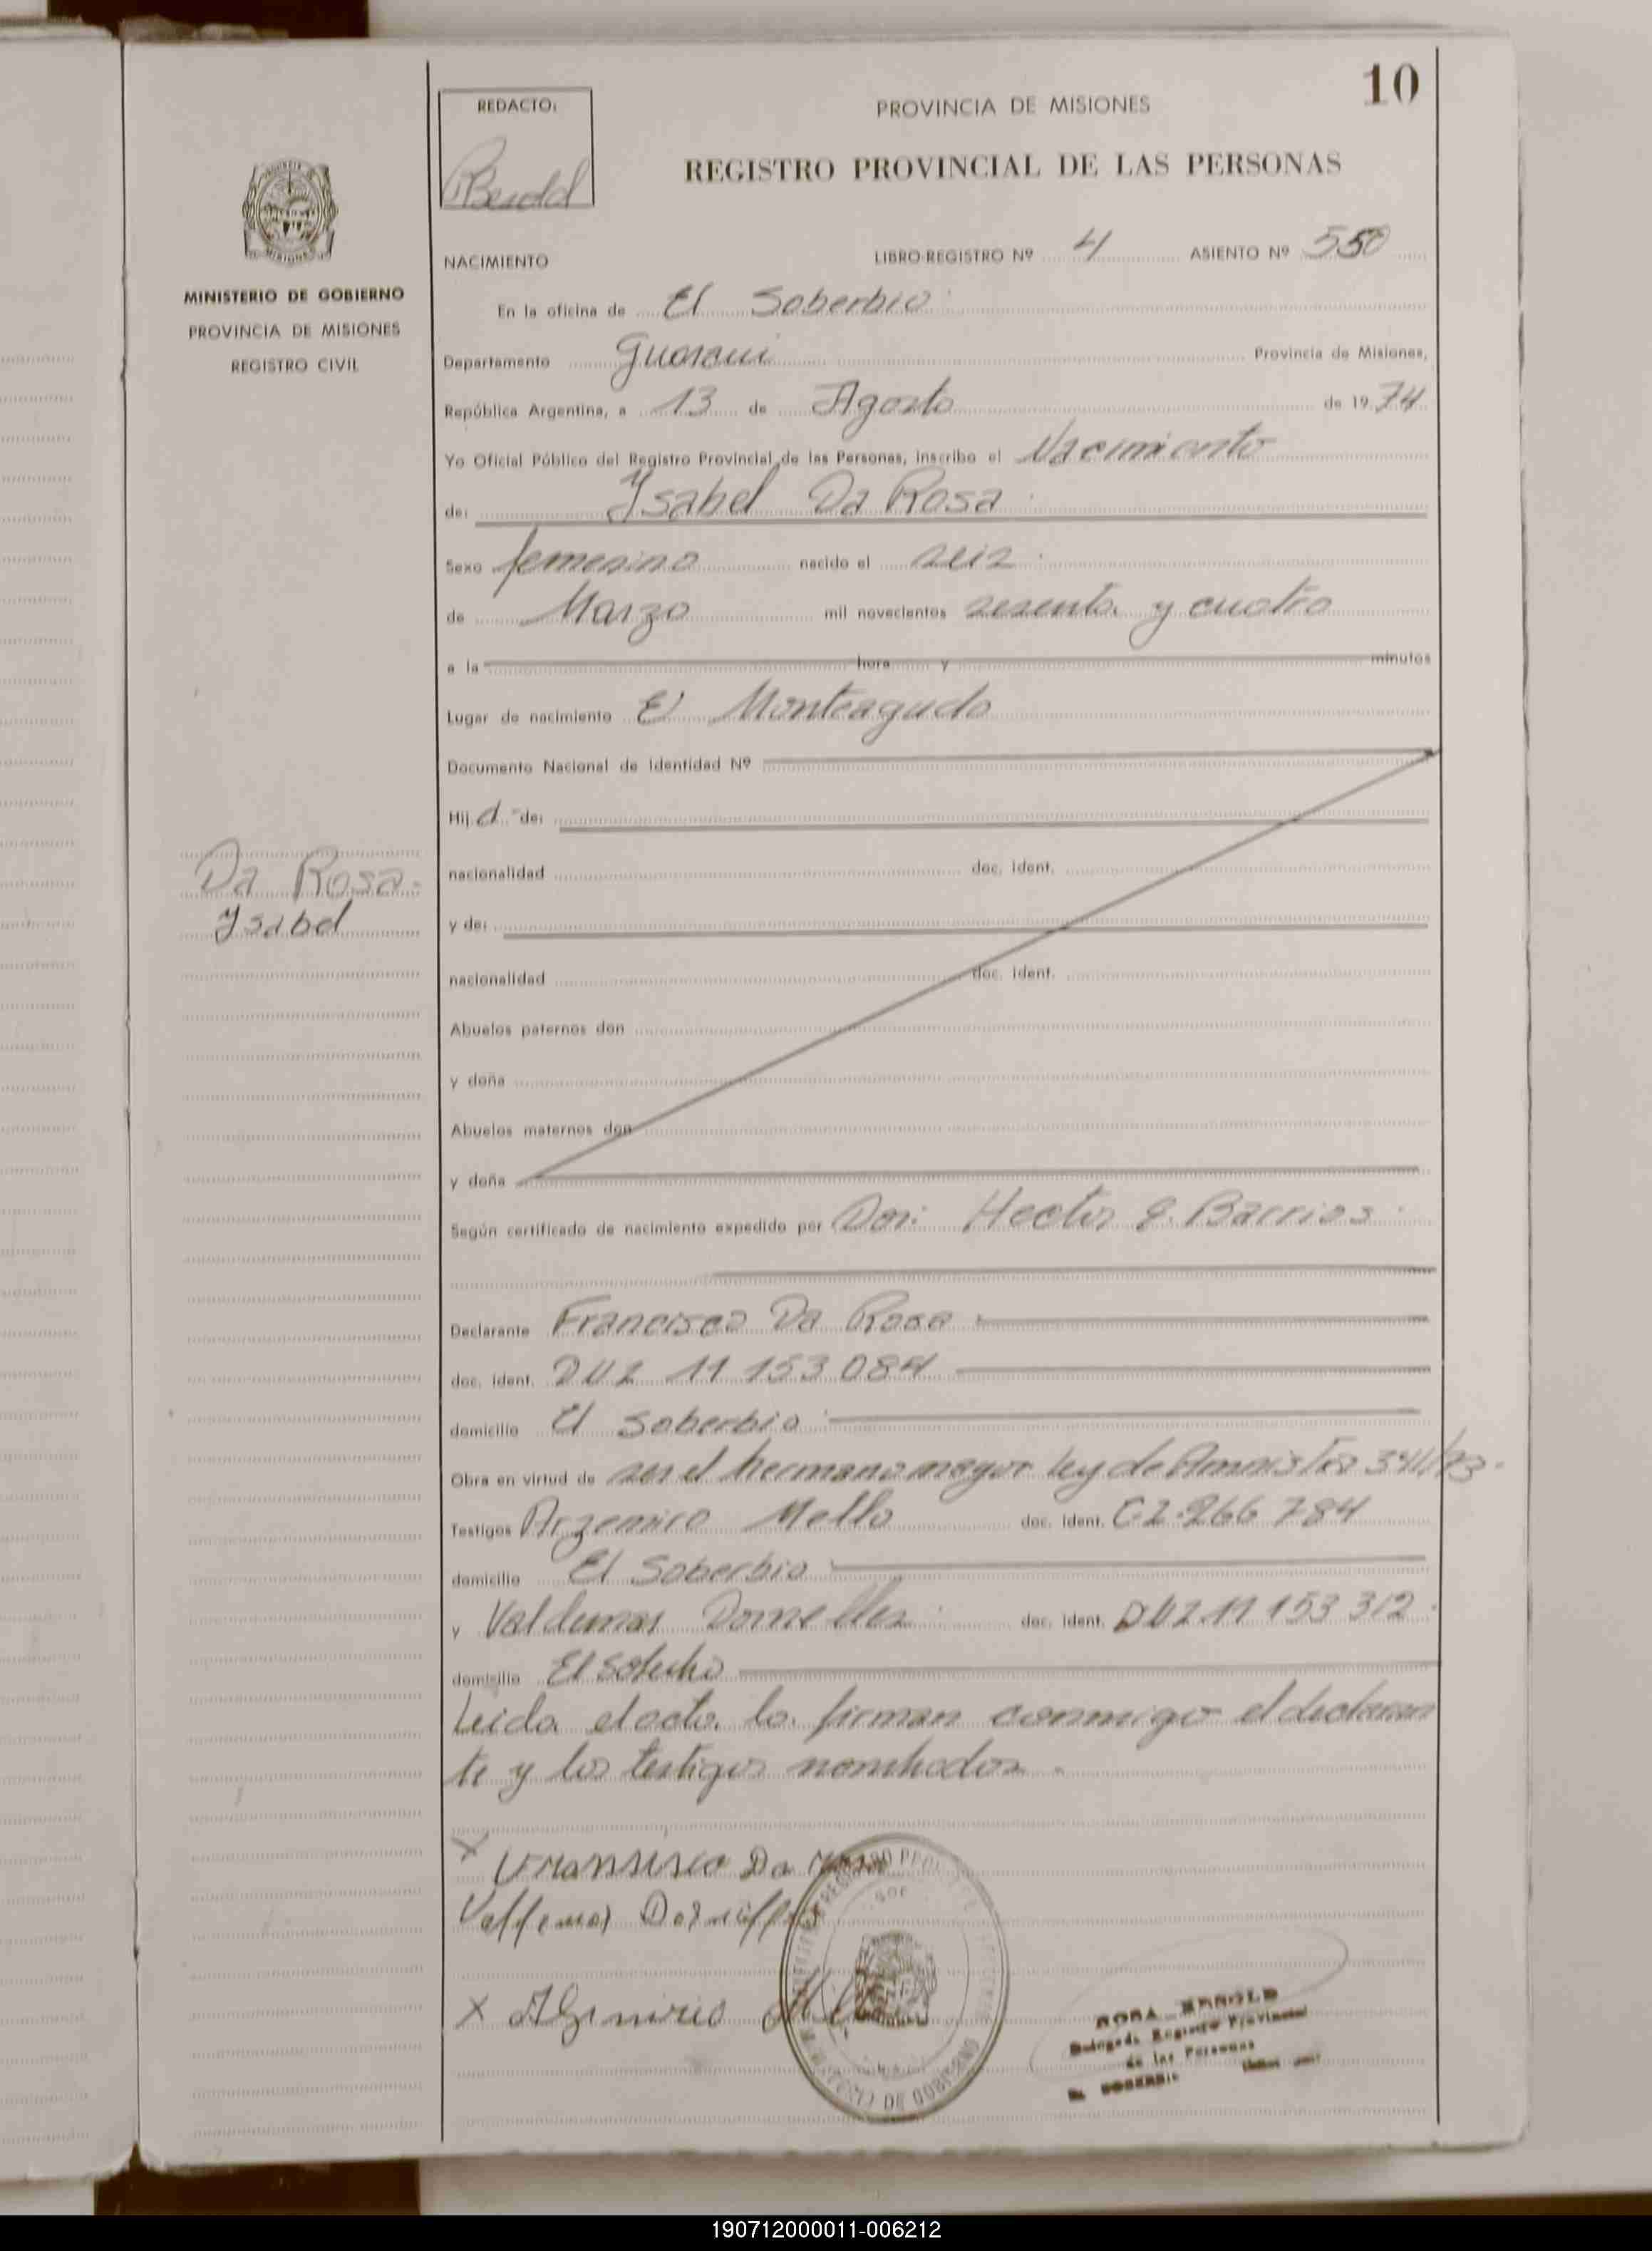 10
REDACTO:
PROVINCIA DE MISIONES
REGISTRO PROVINCIAL DE LAS PERSONAS
NACIMIENTO LIBRO-REGISTRO Nº 4 ASIENTO Nº 550
MINISTERIO DE GOBIERNO
PROVINCIA DE MISIONES
REGISTRO CIVIL
En la oficina de El Soberbio
Departamento Guarani Provincia de Misiones,
República Argentina, a 13 de Agosto de 1974
Yo Oficial Público del Registro Provincial de las Personas, inscribo el Nacimiento
de: Ysabel Da Rosa
Sexo femenino nacido el seis
de Marzo mil novecientos sesenta y cuatro
a la hora y minutos
Lugar de nacimiento El Monteagudo
Documento Nacional de Identidad Nº
Hij a de:
nacionalidad doc. ident.
Da Rosa
Ysabel
y de:
nacionalidad doc. ident.
Abuelos paternos don
y doña
Abuelos maternos don
y doña
Según certificado de nacimiento expedido por Don: Hector Barrios
Declarante Francisco Da Rosa
doc. ident. 11 153 084
domicilio El Soberbio
Obra en virtud de ser el hermano mayor ley de Amnistia 341/73
Testigos Argemiro Mello doc. ident. C.I. 266 784
domicilio El Soberbio
y Valdemar Dornelles doc. ident. 11 153 312
domicilio El Soberbio
Leida el acta la firman conmigo el declaran
te y los testigos nombrados.
Da Rosa
MINISTERIO DE GOBIERNO
Delegada Registro Provincial
de las Personas
EL SOBERBIO
190712000011-006212